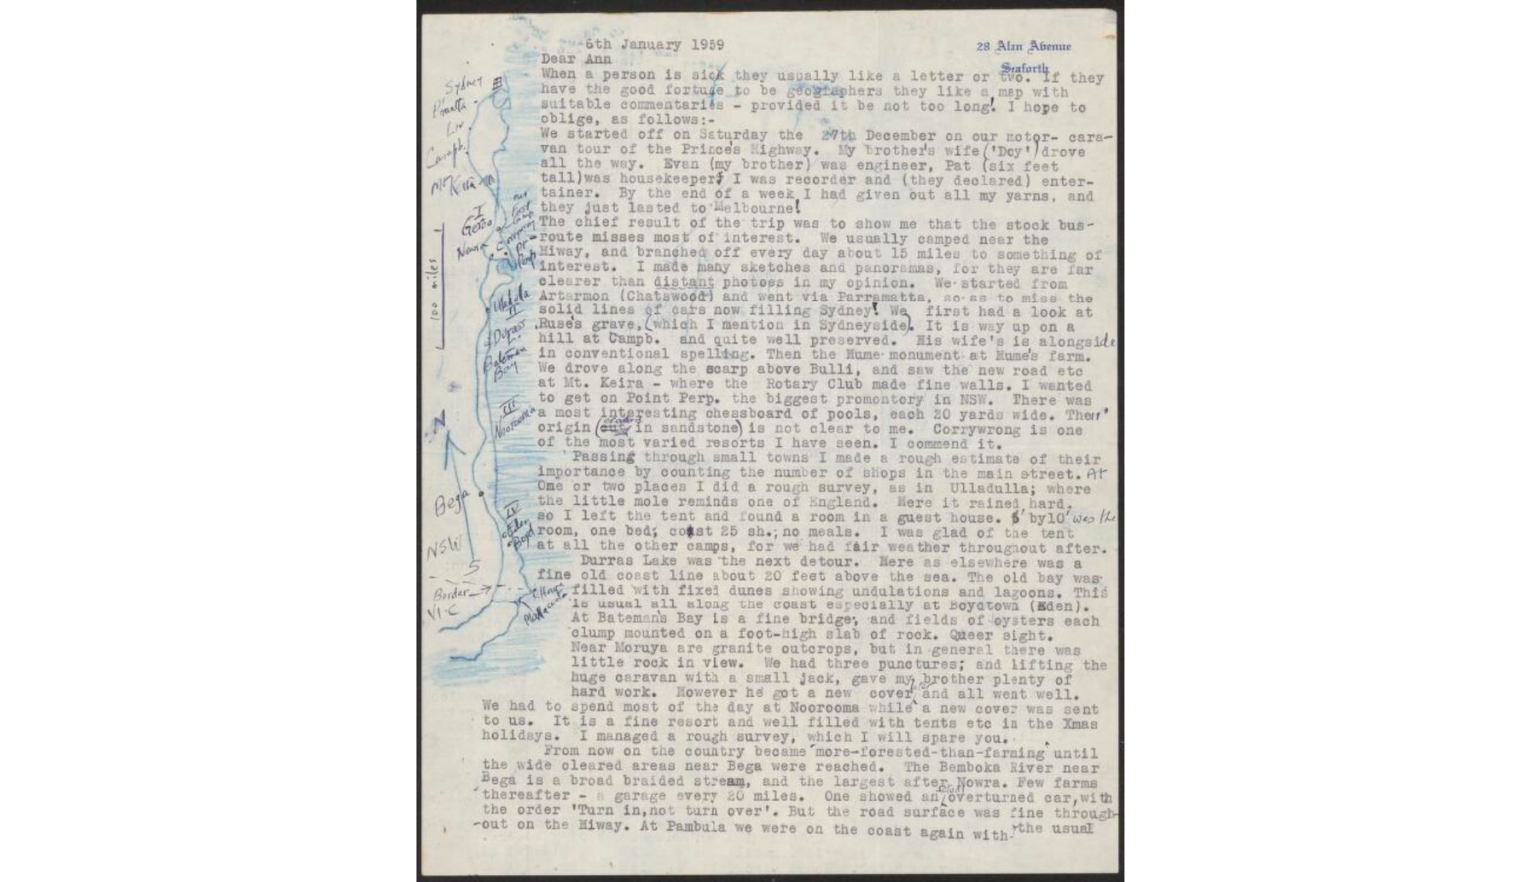 6th January 1959
28 Alan Avenue
Seaforth
Dear Ann
When a person is sick they usually like a letter or two. If they
have the good fortune to be geographers they like a map with
suitable commentaries - provided it be not too long! I hope to
oblige, as follows:-
We started off on Saturday the 27th December on our motor- cara-
van tour of the Prince's Highway. My brother's wife ('Doy') drove
all the way. Evan (my brother) was engineer, Pat (six feet
tall)was housekeeper; I was recorder and (they declared) enter-
tainer. By the end of a week I had given out all my yarns, and
they just lasted to Melbourne!
The chief result of the trip was to show me that the stock bus-
route misses most of interest. We usually camped near the
Hiway, and branched off every day about 15 miles to something of
interest. I made many sketches and panoramas, for they are far
clearer than distant photoes in my opinion. We started from
Artarmon (Chatswood) and went via Parramatta, so as to miss the
solid lines of cars now filling Sydney! We first had a look at
Ruse's grave, (which I mention in Sydneyside). It is way up on a
hill at Campb. and quite well preserved. His wife's is alongside
in conventional spelling. Then the Hume monument at Hume's farm.
We drove along the scarp above Bulli, and saw the new road etc
at Mt. Keira - where the Rotary Club made fine walls. I wanted
to get on Point Perp. the biggest promontory in NSW. There was
a most interesting chessboard of pools, each 20 yards wide. Their
origin ( in sandstone) is not clear to me. Corrywrong is one
of the most varied resorts I have seen. I commend it.
Passing through small towns I made a rough estimate of their
importance by counting the number of shops in the main street. At
One or two places I did a rough survey, as in Ulladulla; where
the little mole reminds one of England. Here it rained hard,
so I left the tent and found a room in a guest house. 6' by10' was the
room, one bed; cost 25 sh.; no meals. I was glad of the tent
at all the other camps, for we had fair weather throughout after.
Durras Lake was the next detour. Here as elsewhere was a
fine old coast line about 20 feet above the sea. The old bay was
filled with fixed dunes showing undulations and lagoons. This
is usual all along the coast especially at Boydtown (Eden).
At Bateman's Bay is a fine bridge, and fields of oysters each
clump mounted on a foot-high slab of rock. Queer sight.
Near Moruya are granite outcrops, but in general there was
little rock in view. We had three punctures; and lifting the
huge caravan with a small jack, gave my brother plenty of
hard work. However he got a new cover and all went well.
We had to spend most of the day at Noorooma while a new cover was sent
to us. It is a fine resort and well filled with tents etc in the Xmas
holidays. I managed a rough survey, which I will spare you.
From now on the country became more-forested-than-farming until
the wide cleared areas near Bega were reached. The Bemboka River near
Bega is a broad braided stream, and the largest after Nowra. Few farms
thereafter - a garage every 20 miles. One showed an overturned car,with
the order 'Turn in,not turn over'. But the road surface was fine through-
-out on the Hiway. At Pambula we were on the coast again with the usual
Sydney
Campb.
Mt Keira
I
Gerroa
Nowra
our
first
camp
100 miles
Ulladulla
II
Durras
L.
Bateman
Bay
III
Noorooma
N
Bega
IV
Eden
Boyd
NSW
S
Border
VIC
Mallacoota